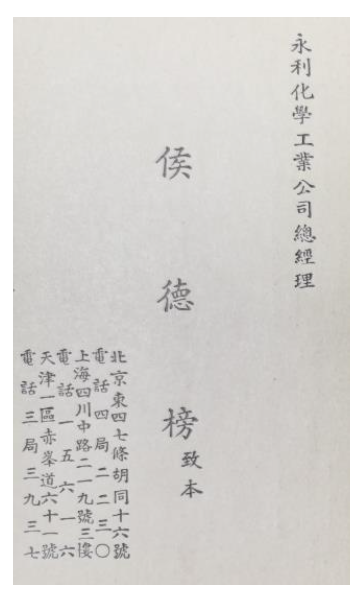 永利化學工業公司總經理
侯德榜
致本
北京東四七條胡同十六號
電話四局二二三〇
上海四川中路二一九號三樓
電話一五六一六
天津一區赤峯道六十一號
電話三局三九三七